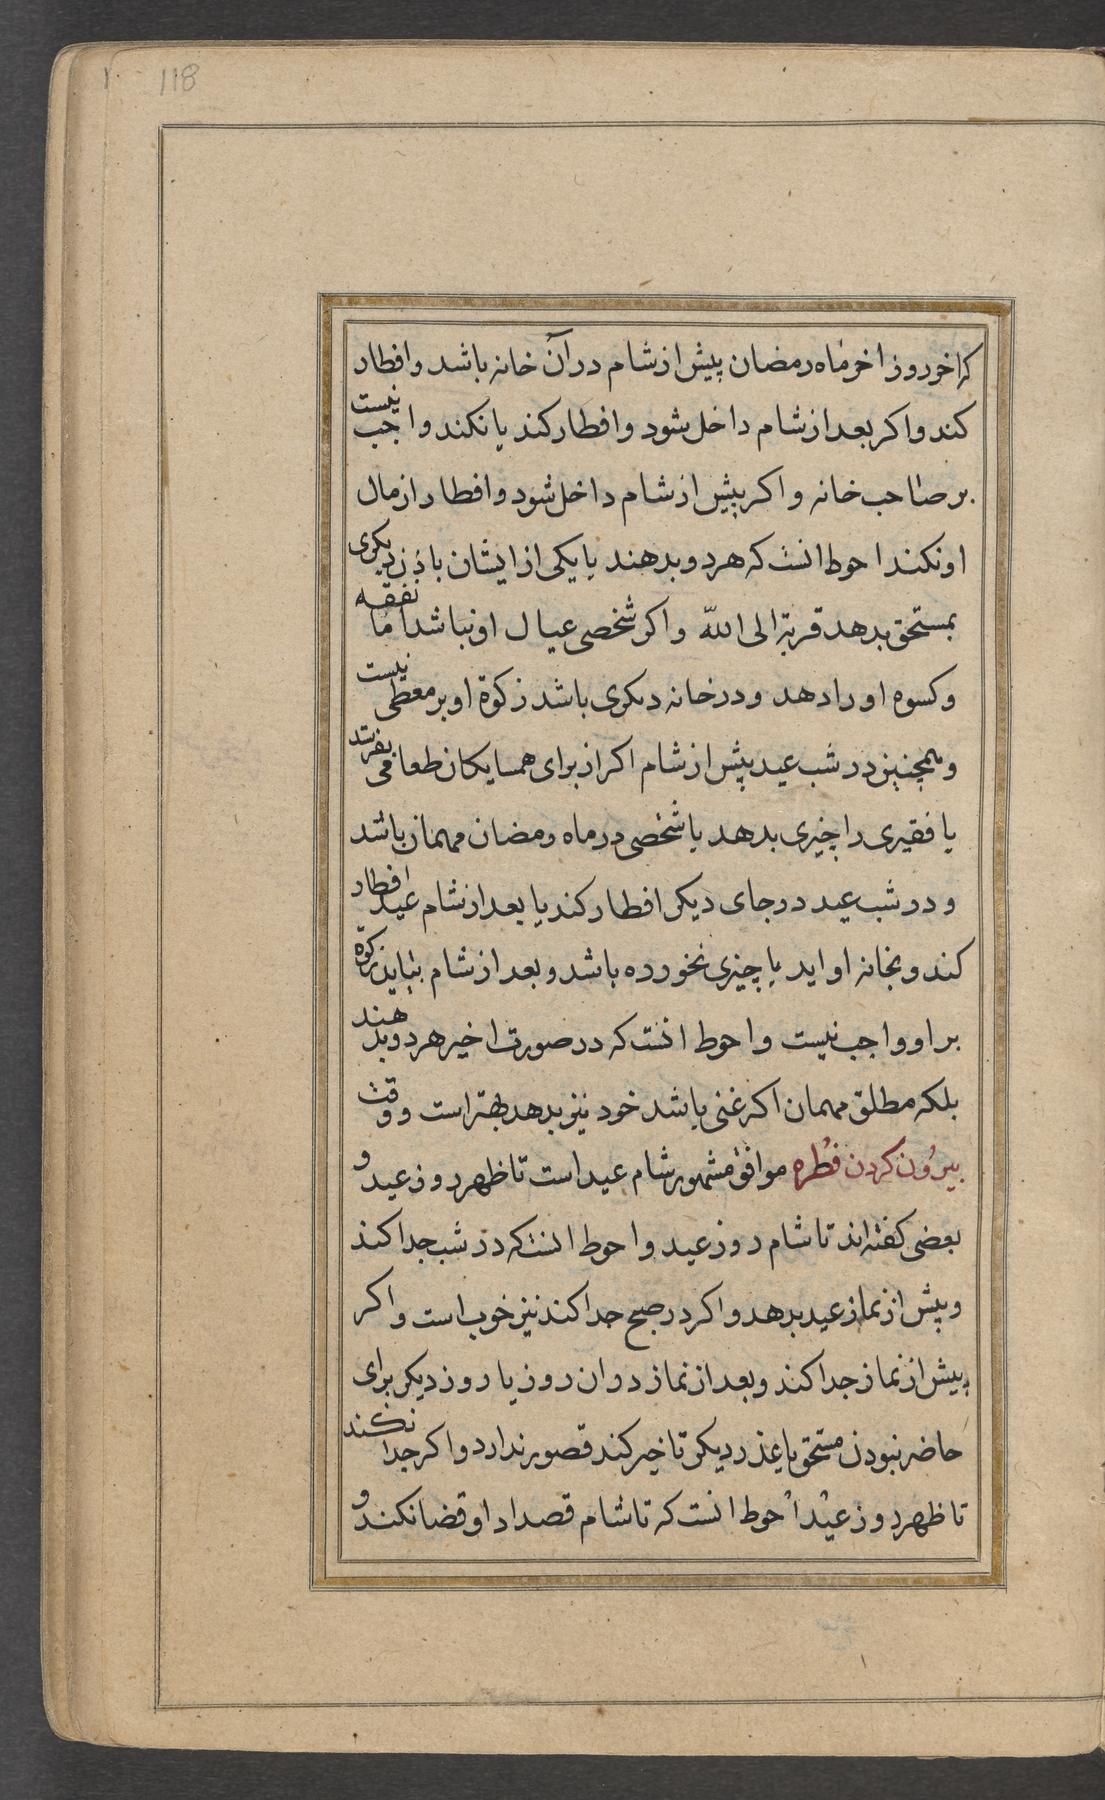 118
که اخر روز اخر ماه رمضان پیش از شام در آن خانه باشد و افطار
کند و اکر بعد از شام داخل شود و افطار کند یا نکند واجب نیست
بر صاحب خانه و اکر پیش از شام داخل شود و افطار از مال
او نکند احوط انست که هر دو بدهند یا یکی از ایشان باذن دیکری
بمستحق بدهد قربة الی الله و اکر شخصی عیال او نباشد اما نفقه
و کسوه او را دهد و در خانه دیکری باشد زکوة او بر معطی نیست
و همچنین در شب عید پیش از شام اکر از برای همسایکان طعامی بفرستد
یا فقیری را چیزی بدهد یا شخصی در ماه رمضان مهمان باشد
و در شب عید در جای دیکر افطار کند یا بعد از شام عید افطار
کند و بخانه او اید یا چیزی نخورده باشد و بعد از شام بیاید زکوة
بر او واجب نیست و احوط انست که در صورت اخیر هر دو بدهند
بلکه مطلق مهمان اکر غنی باشد خود نیز بدهد بهتر است و وقت
بیرون کردن فطره موافق مشهور شام عید است تا ظهر روز عید و
بعضی کفته‌اند تا شام روز عید و احوط انست که در شب جدا کند
و پیش از نماز عید بدهد و اکر در صبح جدا کند نیز خوب است و اکر
پیش از نماز جدا کند و بعد از نماز در ان روز یا روز دیکر برای
حاضر نبودن مستحق یا عذر دیکر تاخیر کند قصور ندارد و اکر جدا نکند
تا ظهر روز عید احوط انست که تا شام قصد ادا و قضا نکند و